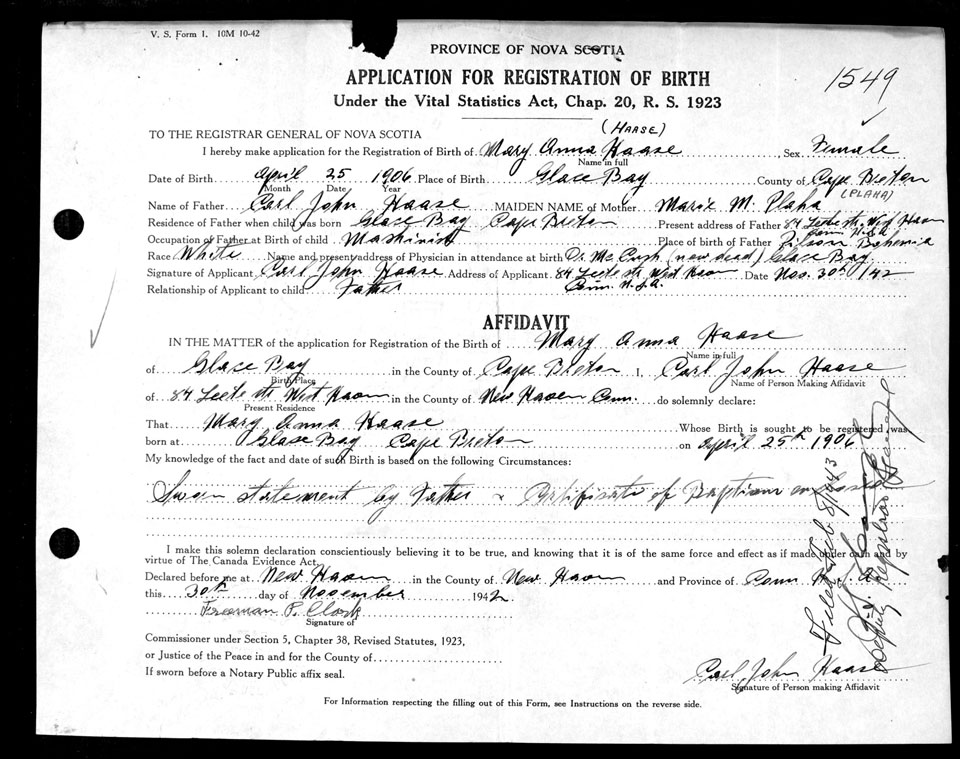 V. S. Form 1. 10M 10-42
PROVINCE OF NOVA SCOTIA
APPLICATION FOR REGISTRATION OF BIRTH
Under the Vital Statistics Act, Chap. 20, R. S. 1923
1549
(HAASE)
TO THE REGISTRAR GENERAL OF NOVA SCOTIA
I hereby make application for the Registration of Birth of Mary Anna Haase Sex Female
Name in full
Date of Birth April 25 1906 Place of Birth Glace Bay County of Cape Breton
Month Date Year
(PLAHA)
Name of Father Carl John Haase MAIDEN NAME of Mother Marie M. Plaha
Residence of Father when child was born Glace Bay Cape Breton Present address of Father 84 Leete St West Haven
Conn U.S.A.
Occupation of Father at Birth of child Mashinist Place of Birth of Father Pilson Bohemia
Race White Name and present address of Physician in attendance at birth Dr. Mc (now dead) Glace Bay
Signature of Applicant Carl John Haase Address of Applicant 84 Leete St. West Haven Date Nov. 30th /42
Conn. U.S.A.
Relationship of Applicant to child Father
AFFIDAVIT
IN THE MATTER of the application for Registration of the Birth of Mary Anna Haase
Name in full
of Glase Bay in the County of Cape Breton I, Carl John Haase
Birth Place Name of Person Making Affidavit
of 84 Leete St. West Haven in the County of New Haven Conn. do solemnly declare:
Present Residence
That Mary Anna Haase Whose Birth is sought to be registered was
born at Glase Bay Cape Breton on April 25th 1906
My knowledge of the fact and date of such Birth is based on the following Circumstances:
Sworn statement by Father & Certificate of Baptism enclosed
I make this solemn declaration conscientiously believing it to be true, and knowing that it is of the same force and effect as if made under oath and by
virtue of The Canada Evidence Act.
Declared before me at New Haven in the County of New Haven and Province of Conn U.S.A.
this 30th day of November 1942
Freeman P. Clark
Signature of
Commissioner under Section 5, Chapter 38, Revised Statutes, 1923,
or Justice of the Peace in and for the County of
If sworn before a Notary Public affix seal.
Carl John Haase
Signature of Person making Affidavit
For Information respecting the filling out of this Form, see Instructions on the reverse side.
Filed Feb 8/1943
Deputy Registrar General